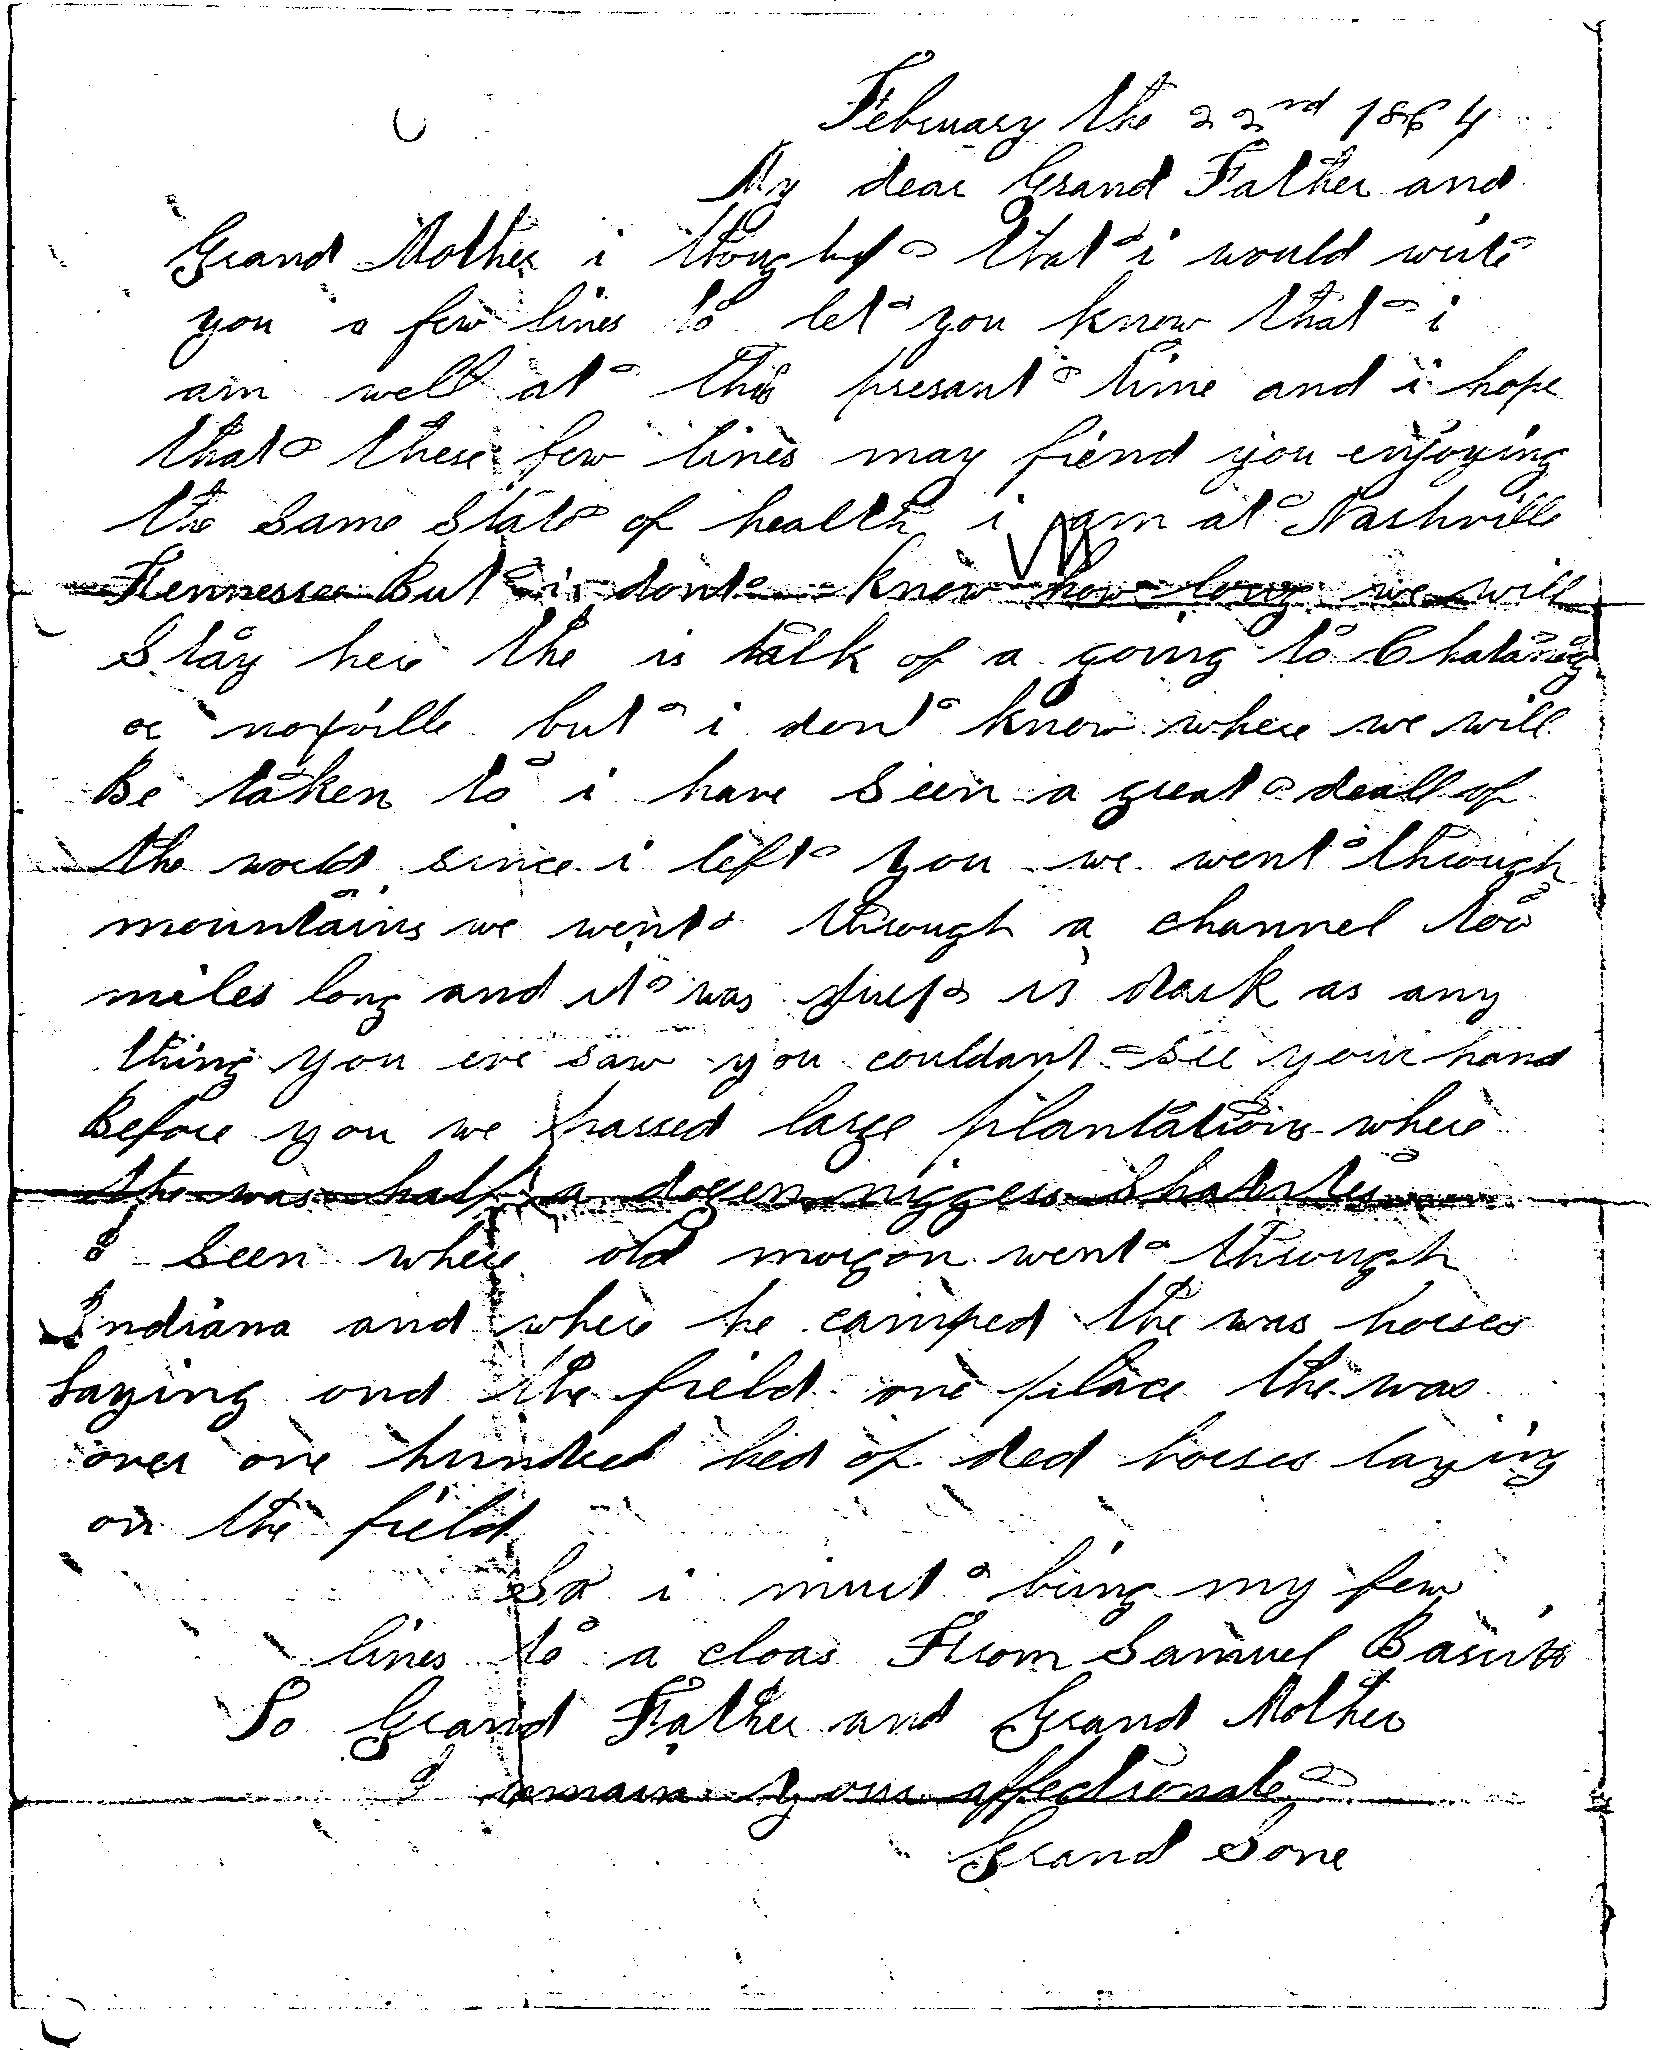 February the 22nd 1864
My dear Grand Father and
Grand Mother i thought that i would write
you a few lines to let you know that i
am well at this presant time and i hope
that these few lines may fiend you enjoying
the same state of health i am at Nashville
Tennessee But i dont know how long we will
Stay here the is talk of a going to Chatanog
or noxville but i dont know where we will
Be taken to i have Seen a great deall of
the world since i left you we went through
mountains we went through a channel too
miles long and it was is dark as any
thing you eve saw you couldant see your hand
Before you we passed large plantations where
the was half a dozen niggers Shanties
I Seen where old morgon went through
Indiana and where he camped the was horses
laying ond the field one place the was
over one hundred hed of ded horses laying
on the field
So i must bring my few
lines to a cloas From Samuel
To Grand Father and Grand Mother
I remain your affectionate
Grand Sone